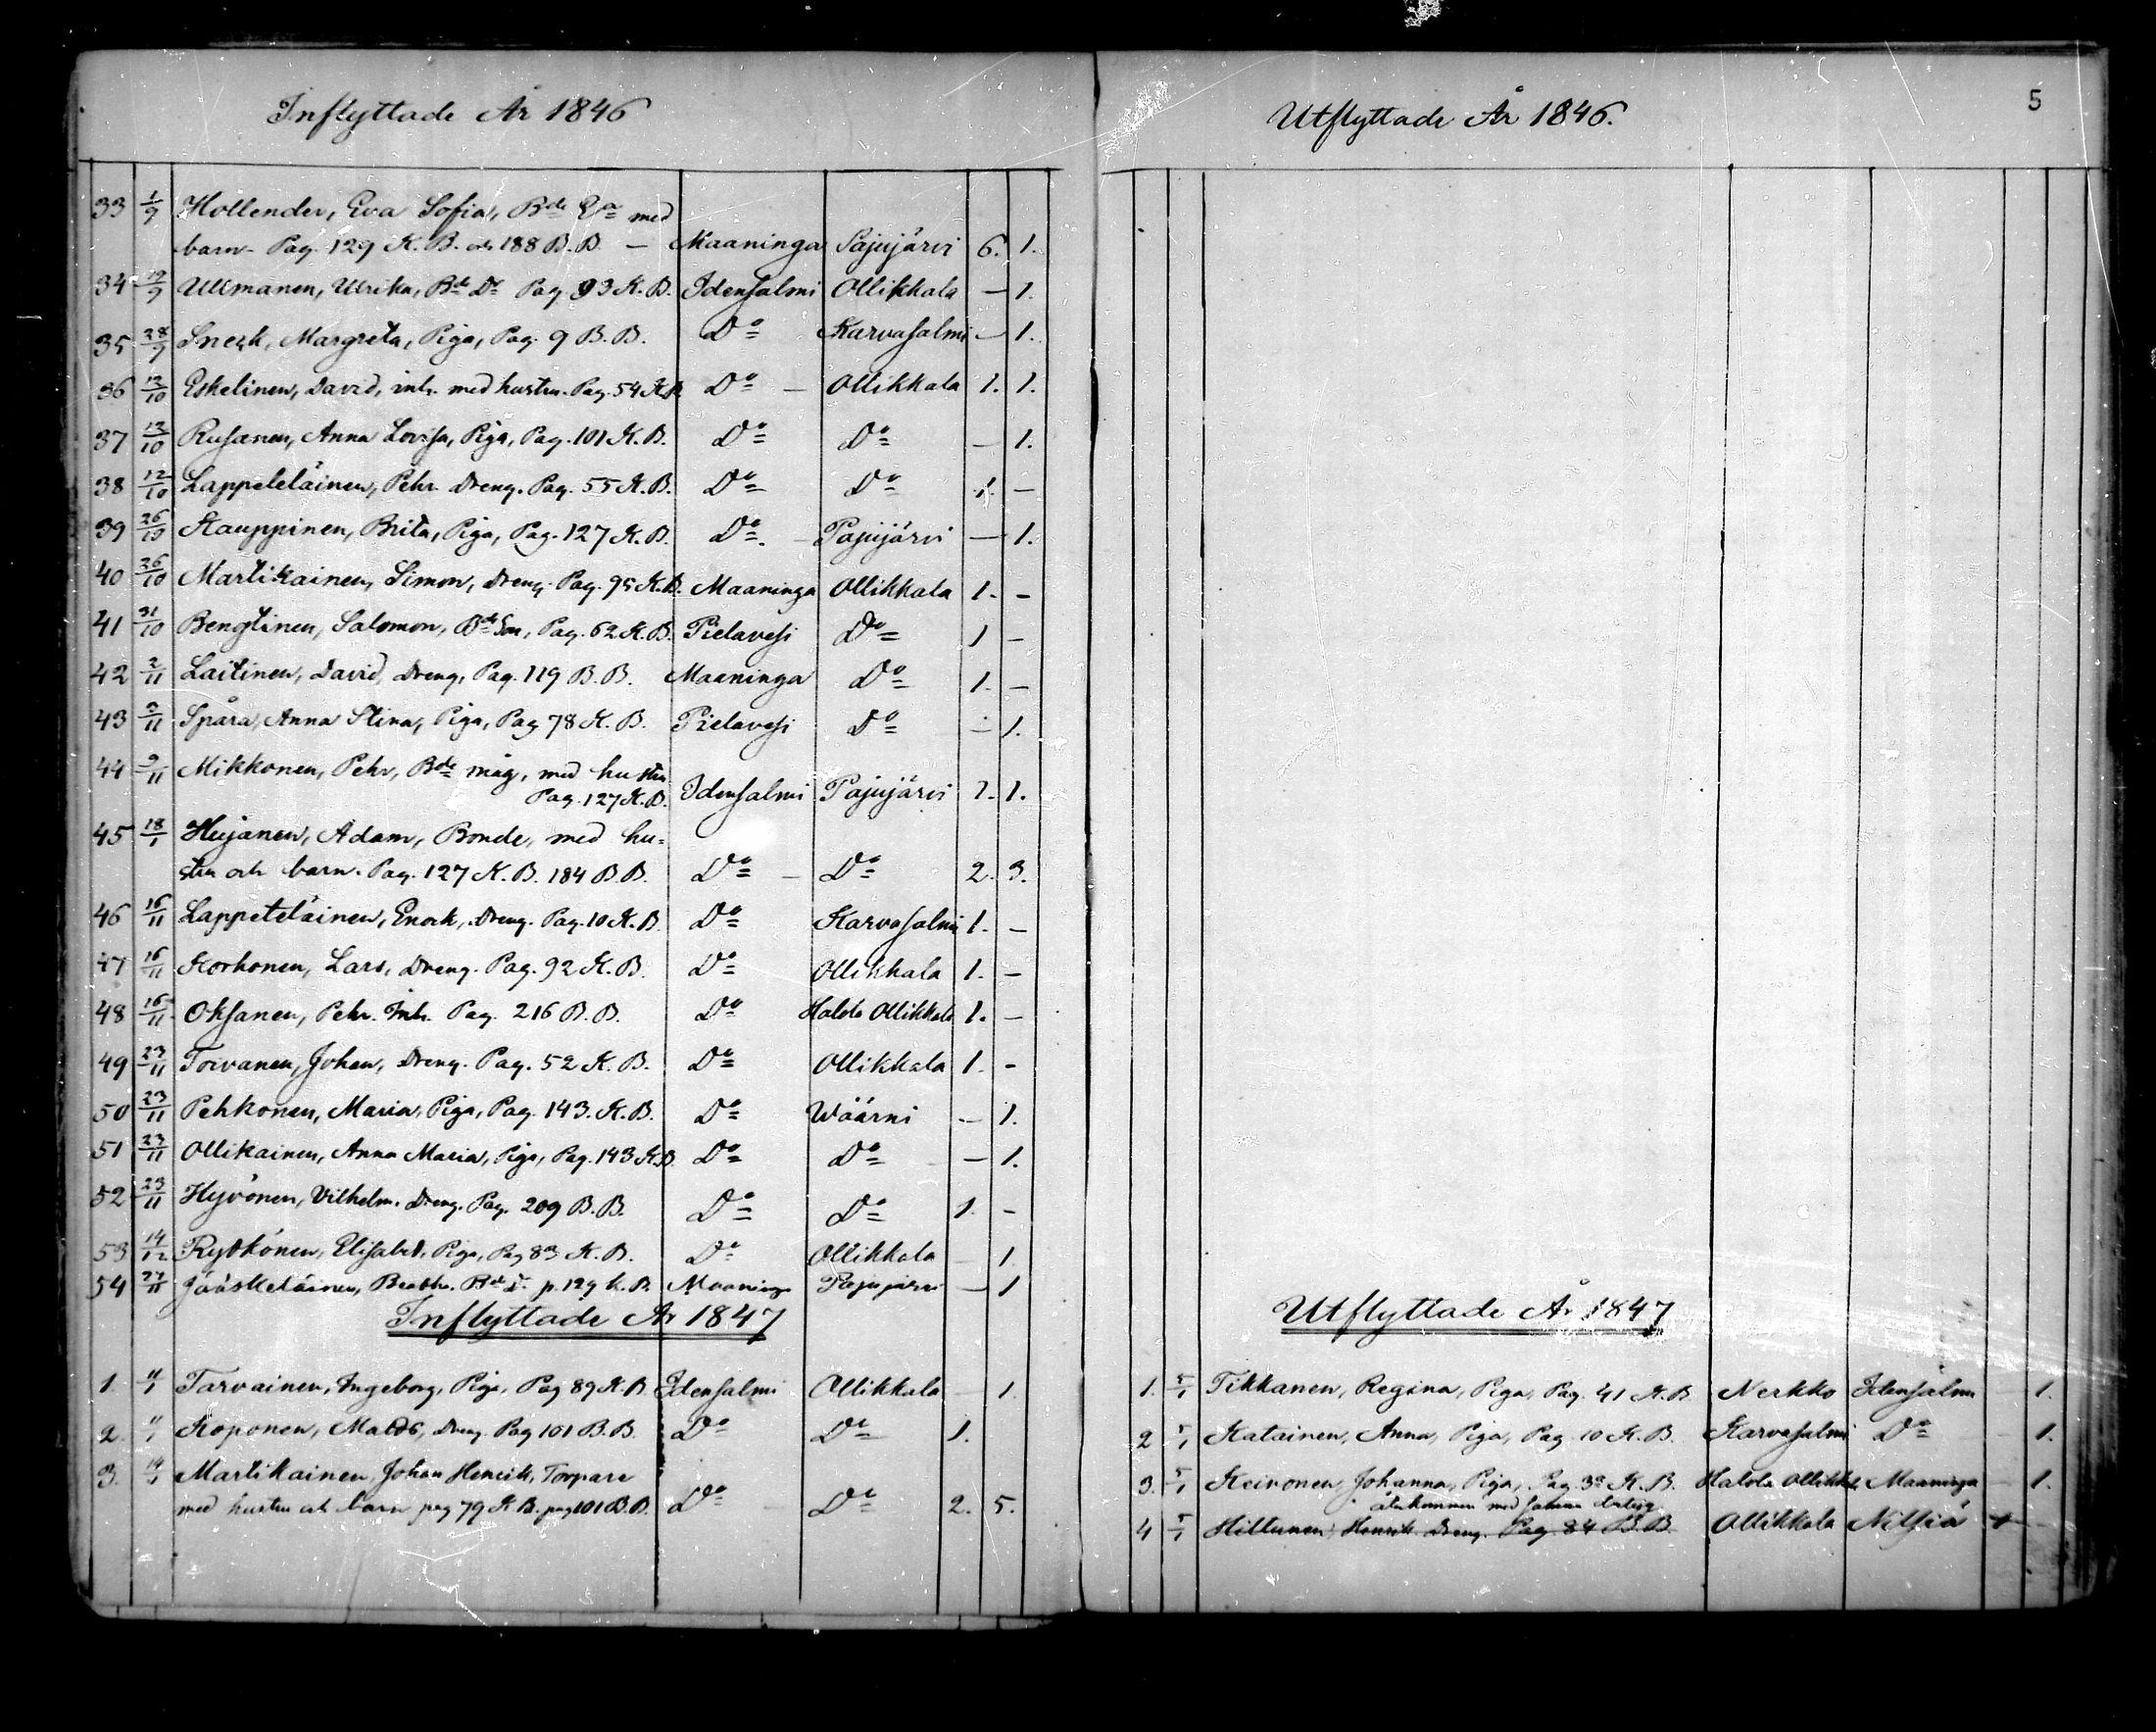 Inflyttade År 1846
33 1/9 Hollender, Eva Sofia, Bde Ea med
barn. Pag. 129 K.B. och 188 B.B. — Maaninga Pajujärvi 6. 1.
34 19/9 Ullmanen, Ulrika, Bde Dr Pag. 93 K.B. Idensalmi Ollikkala — 1.
35 28/9 Sneck, Margreta, Piga, Pag. 9 B.B. Do Karvasalmi — 1.
36 12/10 Eskelinen, David, inh. med hustru. Pag. 54 K.B. Do — Ollikkala 1. 1.
37 12/10 Rusanen, Anna Lovisa, Piga, Pag. 101 K.B. Do Do — 1.
38 12/10 Lappeteläinen, Pehr Dreng. Pag. 55 K.B. Do Do 1. —
39 26/10 Kauppinen, Brita, Piga, Pag. 127 K.B. Do — Pajujärvi — 1.
40 26/10 Martikainen, Simon, Dreng. Pag. 95 K.B. Maaninga Ollikkala 1. -
41 31/10 Bengtinen, Salomon, Bde Son, Pag. 62 K.B. Pielavesi Do 1 -
42 2/11 Laitinen, David, Dreng, Pag. 119 B.B. Maaninga Do 1. -
43 3/11 Spåra, Anna Stina, Piga, Pag 78 K.B. Pielavesi Do - 1.
44 9/11 Mikkonen, Pehr, Bde måg, med hustru
Pag. 127 K.B. Idensalmi Pajujärvi 1. 1.
45 18/1 Hujanen, Adam, Bonde, med hu=
stru och barn. Pag. 127 K.B. 184 B.B. Do — Do 2. 3.
46 16/11 Lappeteläinen, Enock, Dreng. Pag. 10 K.B. Do Karvasalmi 1. -
47 16/11 Korhonen, Lars, Dreng. Pag. 92 K.B. Do Ollikkala 1. -
48 16/11 Oksanen, Pehr. Inh. Pag. 216 B.B. Do Halola Ollikkala 1. -
49 23/11 Toivanen, Johan, Dreng. Pag. 52 K.B. Do Ollikkala 1. -
50 23/11 Pehkonen, Maria, Piga, Pag. 143. K.B. Do Wäärni — 1.
51 23/11 Ollikainen, Anna Maria, Piga, Pag. 143 K.B. Do Do — 1.
52 23/11 Hyvönen, Vilhelm. Dreng. Pag. 209 B.B. Do Do 1. -
53 14/12 Rytkönen, Elisabet, Piga, Pag 83 K.B. Do Ollikkala 1
54 27/11 Jääskeläinen, Beatha. Bde Dr p. 129 K.B. Maaninga Pajujärvi — 1
Inflyttade År 1847
1. 11/1 Tarvainen, Ingeborg, Piga, Pag 89 K.B. Idensalmi Ollikkala 1.
2. 11/1 Koponen, Mats, Dreng Pag 101 B.B. Do Do 1.
3. 14/1 Martikainen, Johan Henrik, Torpare
med hustru och barn pag 79 K.B. pag 101 B.B. Do Do 2. 5.
Utflyttade År 1846.
5
Utflyttade År 1847
1. 5/1 Tikkanen, Regina, Piga, Pag. 41 K.B. Nerkko Idensalmi 1.
2 5/1 Katainen, Anna, Piga, Pag 10 K.B. Karvasalmi Do 1.
3. 5/1 Keinonen Johanna, Piga, Pag. 38 K.B. Halola Ollikkala Maaninga 1.
återkommen med samma betyg.
4 5/1 Hiltunen, Henrik Dreng. Pag. 84 B.B. Ollikkala Nilsiä 1